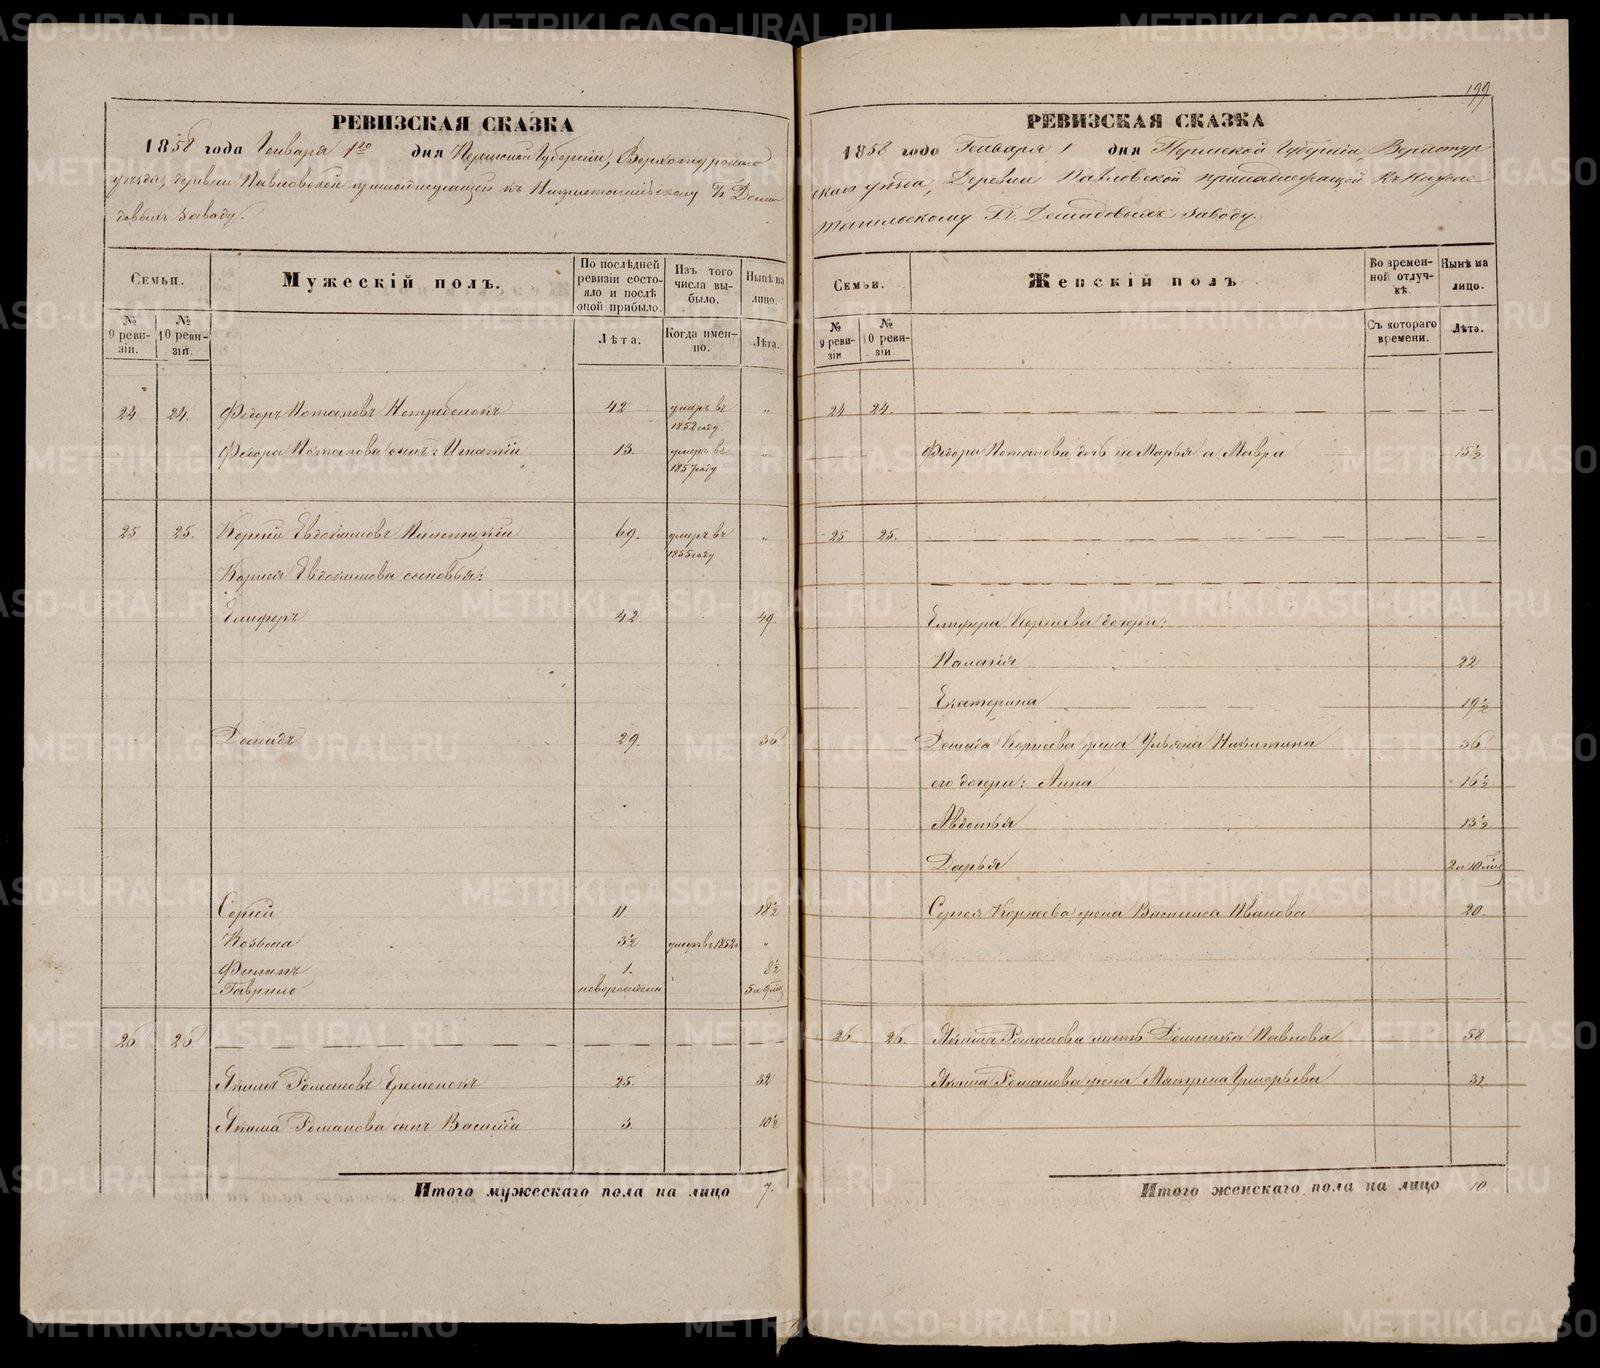 199
РЕВИЗСКАЯ СКАЗКА
1858 года Генваря 1го дня Пермской Губернии, Верхотурскаго
уезда, деревни Павловской принадлежащей къ Нижнетагильскому Гг. Деми
довыхъ заводу.
Семьи.
Мужескій полъ.
По послѣдней ревизіи состояло и послѣ оной прибыло.
Изъ того числа выбыло.
Нынѣ на лицо.
№ 9 ревизіи.
№ 10 ревизіи.
Лѣта.
Когда именно.
Лѣта.
24 24. Федоръ Потаповъ 42 умеръ въ 1852 году „
Федора Потапова сынъ: Игнатій 13 умеръ въ 1857 году „
25 25. Корней Евдокимовъ 69. умеръ въ 1855 году „
Корнея Евдокимова сыновья:
Елиферъ 42 49.
Демидъ 29. 36
Сергей 11 18½
Козьма 3½ умеръ въ 1852 „
Филипъ 1. 8½
Гаврило новорожденъ 5 и 9 мц
26 26 — — —
Якимъ Романовъ 25. 32
Якима Романова сынъ Василій 3. 10½
Итого мужескаго пола на лицо 7.
РЕВИЗСКАЯ СКАЗКА
1858 года Генваря 1 дня Пермской Губерніи, Верхотур
скаго уѣзда, Деревни Павловской принадлежащей къ Нижне-
тагильскому Гг. Демидовыхъ заводу.
Семьи.
Женскій полъ
Во временной отлучкѣ.
Нынѣ на лицо.
№ 9 ревизіи
№ 10 ревизіи
Съ котораго времени.
Лѣта.
24 24. — — —
Федора Потапова дочь не Марья а Мавра 15½
25 25. — — —
Елифера Корнеева дочери:
Палагія 22
Екатерина 19½
Демида Корнеева жена Ульяна Никитина 36
его дочери: Анна 16½
Авдотья 13½
Дарья
Сергея Корнеева жена Василиса Иванова 20.
26 26. Якима Романова мать Павлова 58
Якима Романова жена Матрена Григорьева 32.
Итого женскаго пола на лицо 10.
METRIKI.GASO-URAL.RU